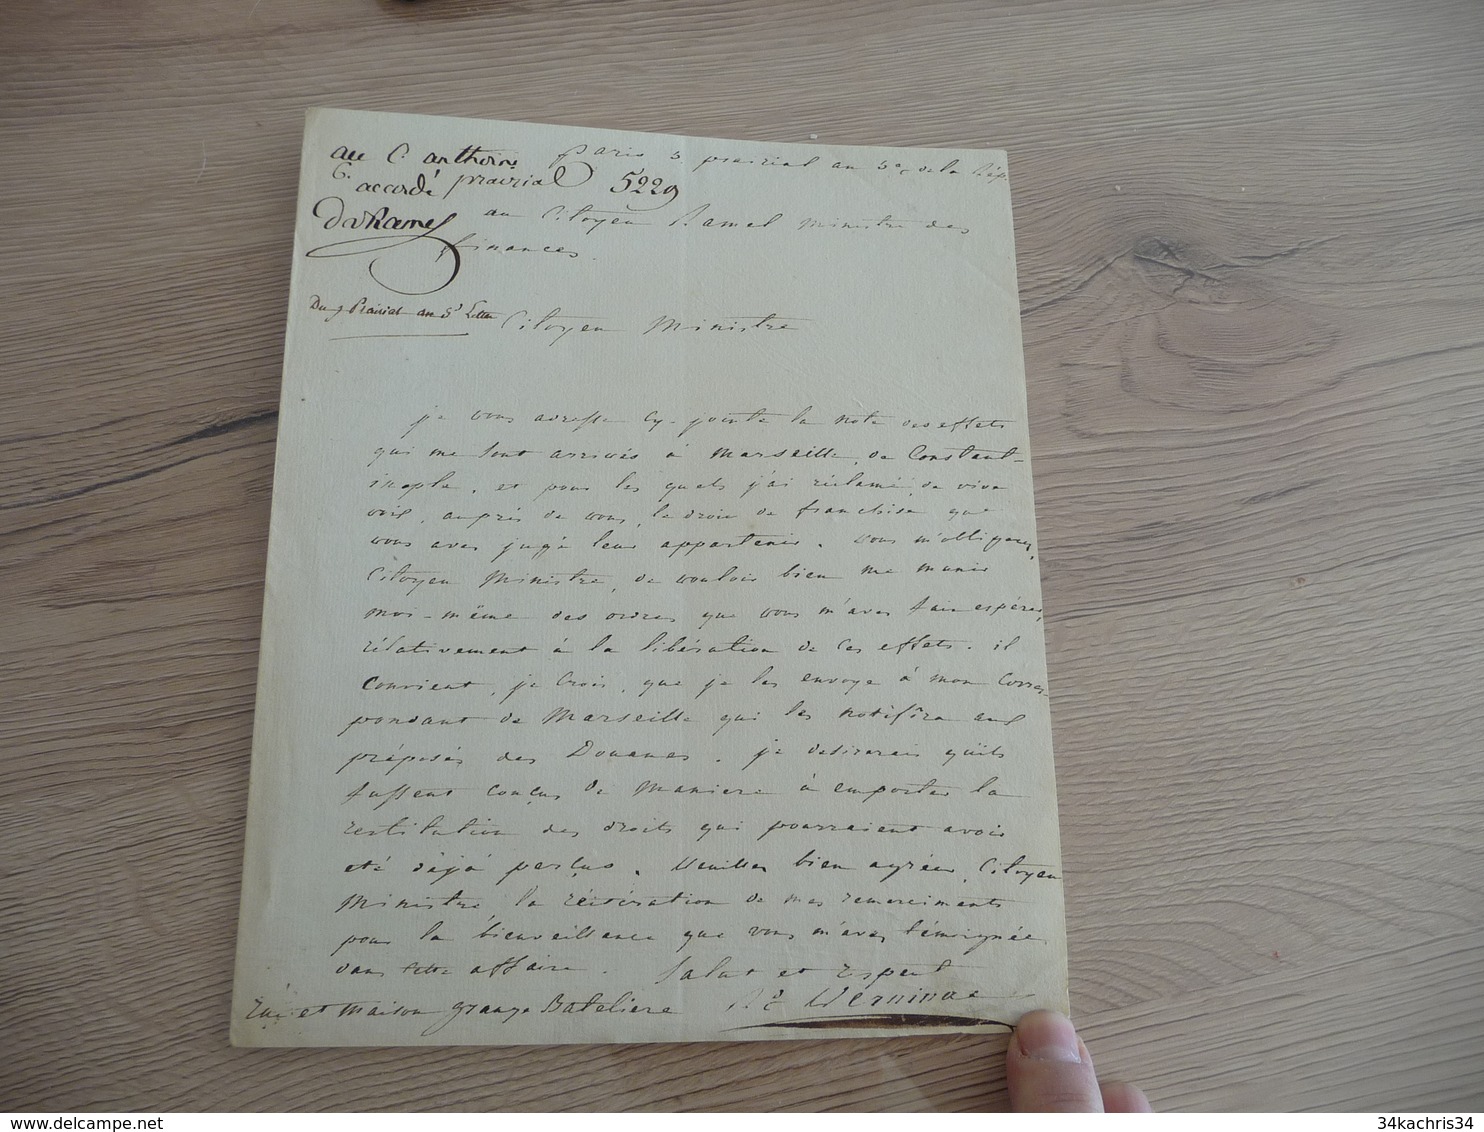 au C. anthoine
paris 3 prairial an 5e. de la Rép
6. prairial 5229
accordé
DvRamel
au Citoyen Ramel Ministre des
finances.
Du 9 Prairial an 5e Lettre
Citoyen Ministre
je vous adresse cy-jointe la note des effets
qui me sont arrivés à Marseille, de Constant-
inople, et pour les quels j'ai réclamé, de vive
voix, auprès de vous, le droit de franchise que
vous avez jugé leur appartenir. Vous m'obligerez,
Citoyen Ministre, de vouloir bien me munir
moi-même des ordres que vous m'avez fait espérer,
rélativement à la libération de ces effets. il
convient, je crois, que je les envoye à mon Corres-
pondant de Marseille qui les notifira aux
préposés des Douanes. je desirerais qu'ils
fussent conçus de maniere à emporter la
restitution des droits qui pourraient avoir
eté déjà perçus. Veuillez bien agréer, Citoyen
Ministre, la réitération de mes remerciments
pour la bienveillance que vous m'avez témoignée
dans cette affaire. Salut et respect
rue et maison grange Bateliere Rd Verninac
delcampe.net
34kachris34